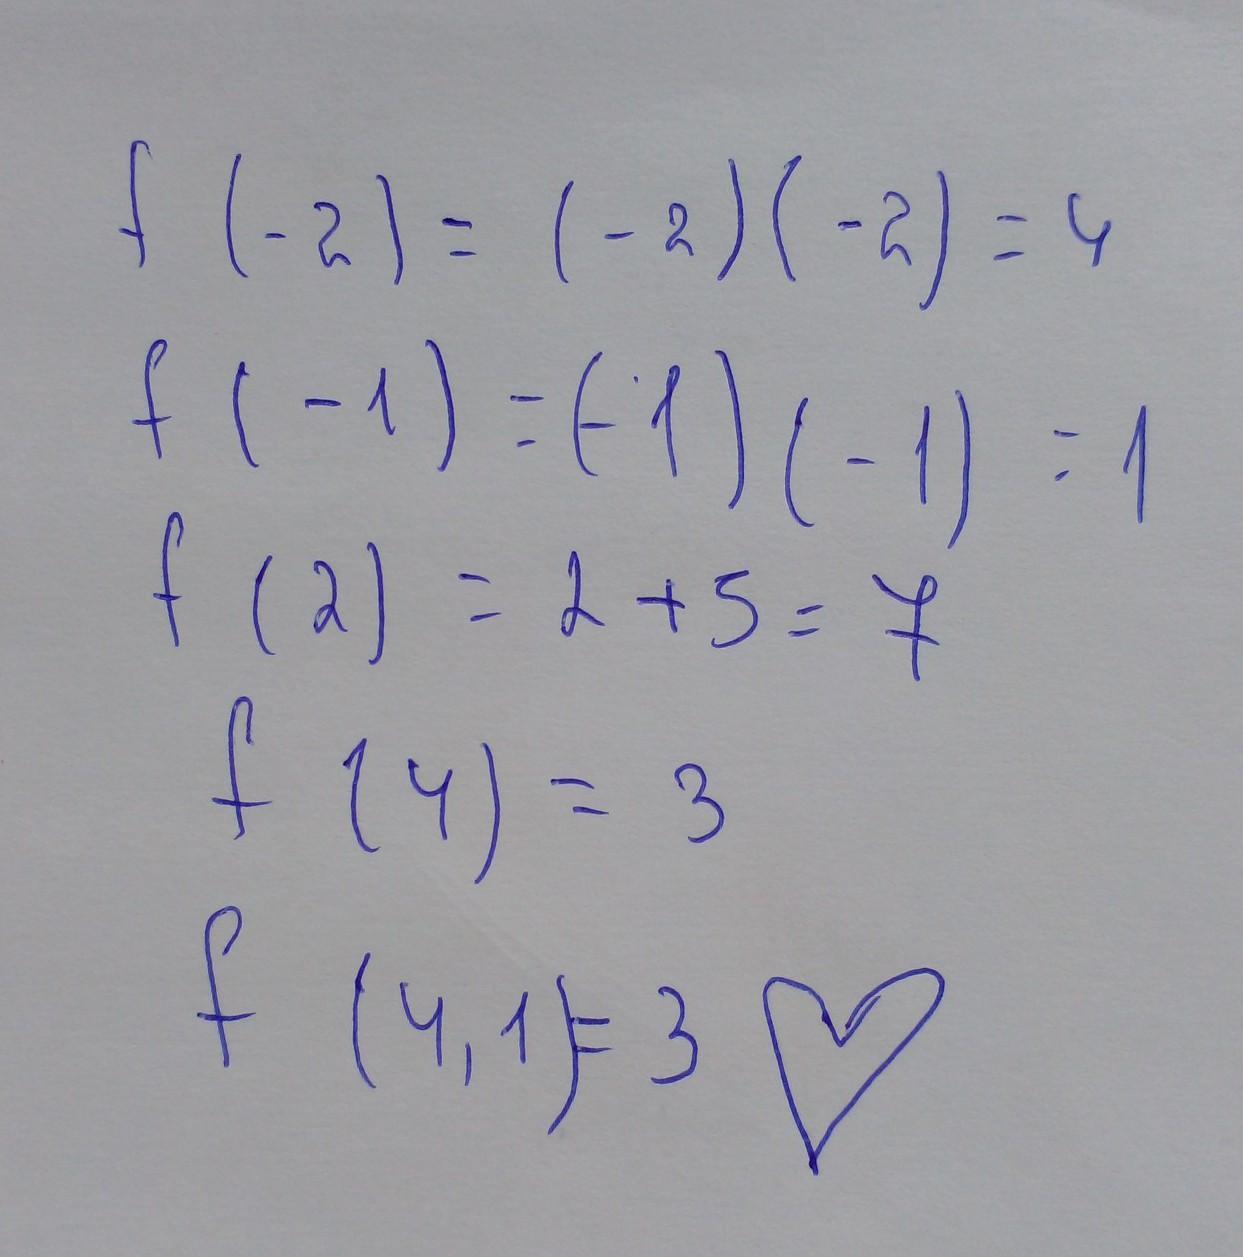 f (-2) = (-2)(-2) = 4
f (-1) = (-1)(-1) = 1
f (2) = 2 + 5 = 7
f (4) = 3
f (4,1) = 3